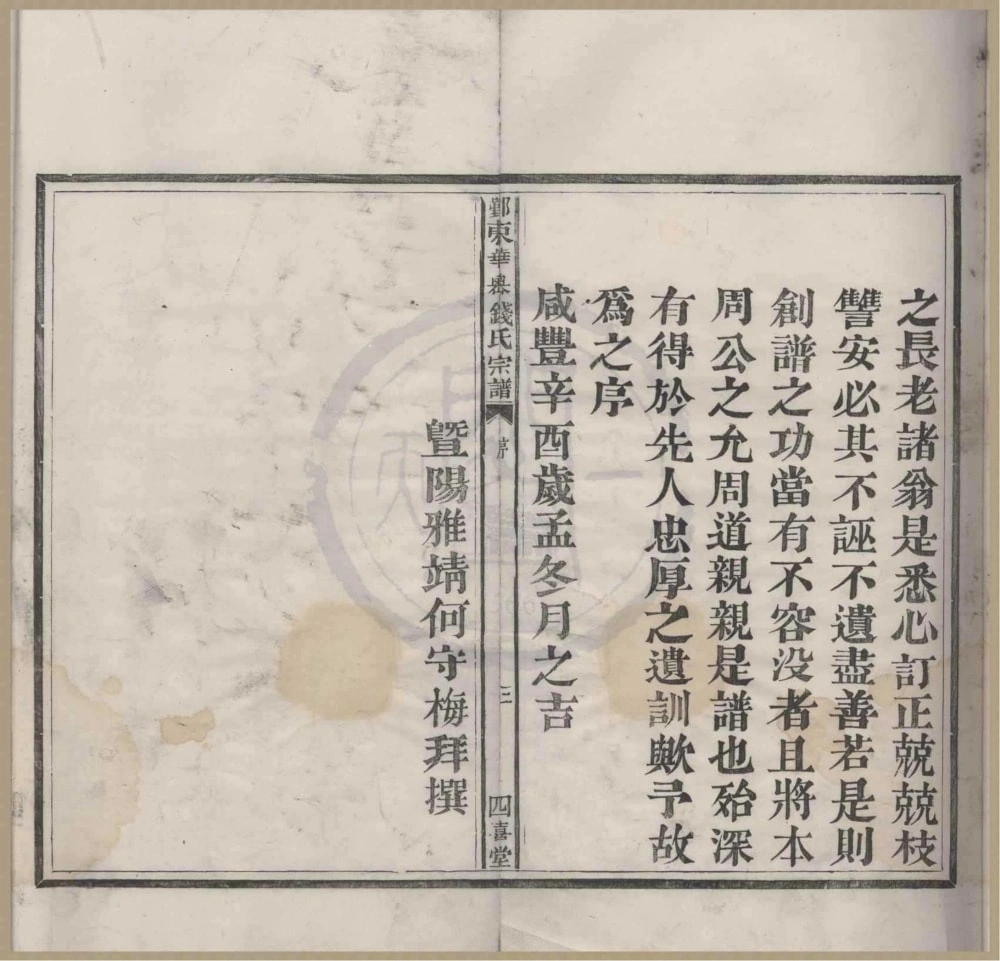 之長老諸翁是悉心訂正兢兢枝
讐安必其不誣不遺盡善若是則
創譜之功當有不容没者且將本
周公之允周道親親是譜也殆深
有得於先人忠厚之遺訓歟予故
爲之序
咸豐辛酉歲孟冬月之吉
鄞東華嶴錢氏宗譜 序 三 四喜堂
暨陽雅靖何守梅拜撰